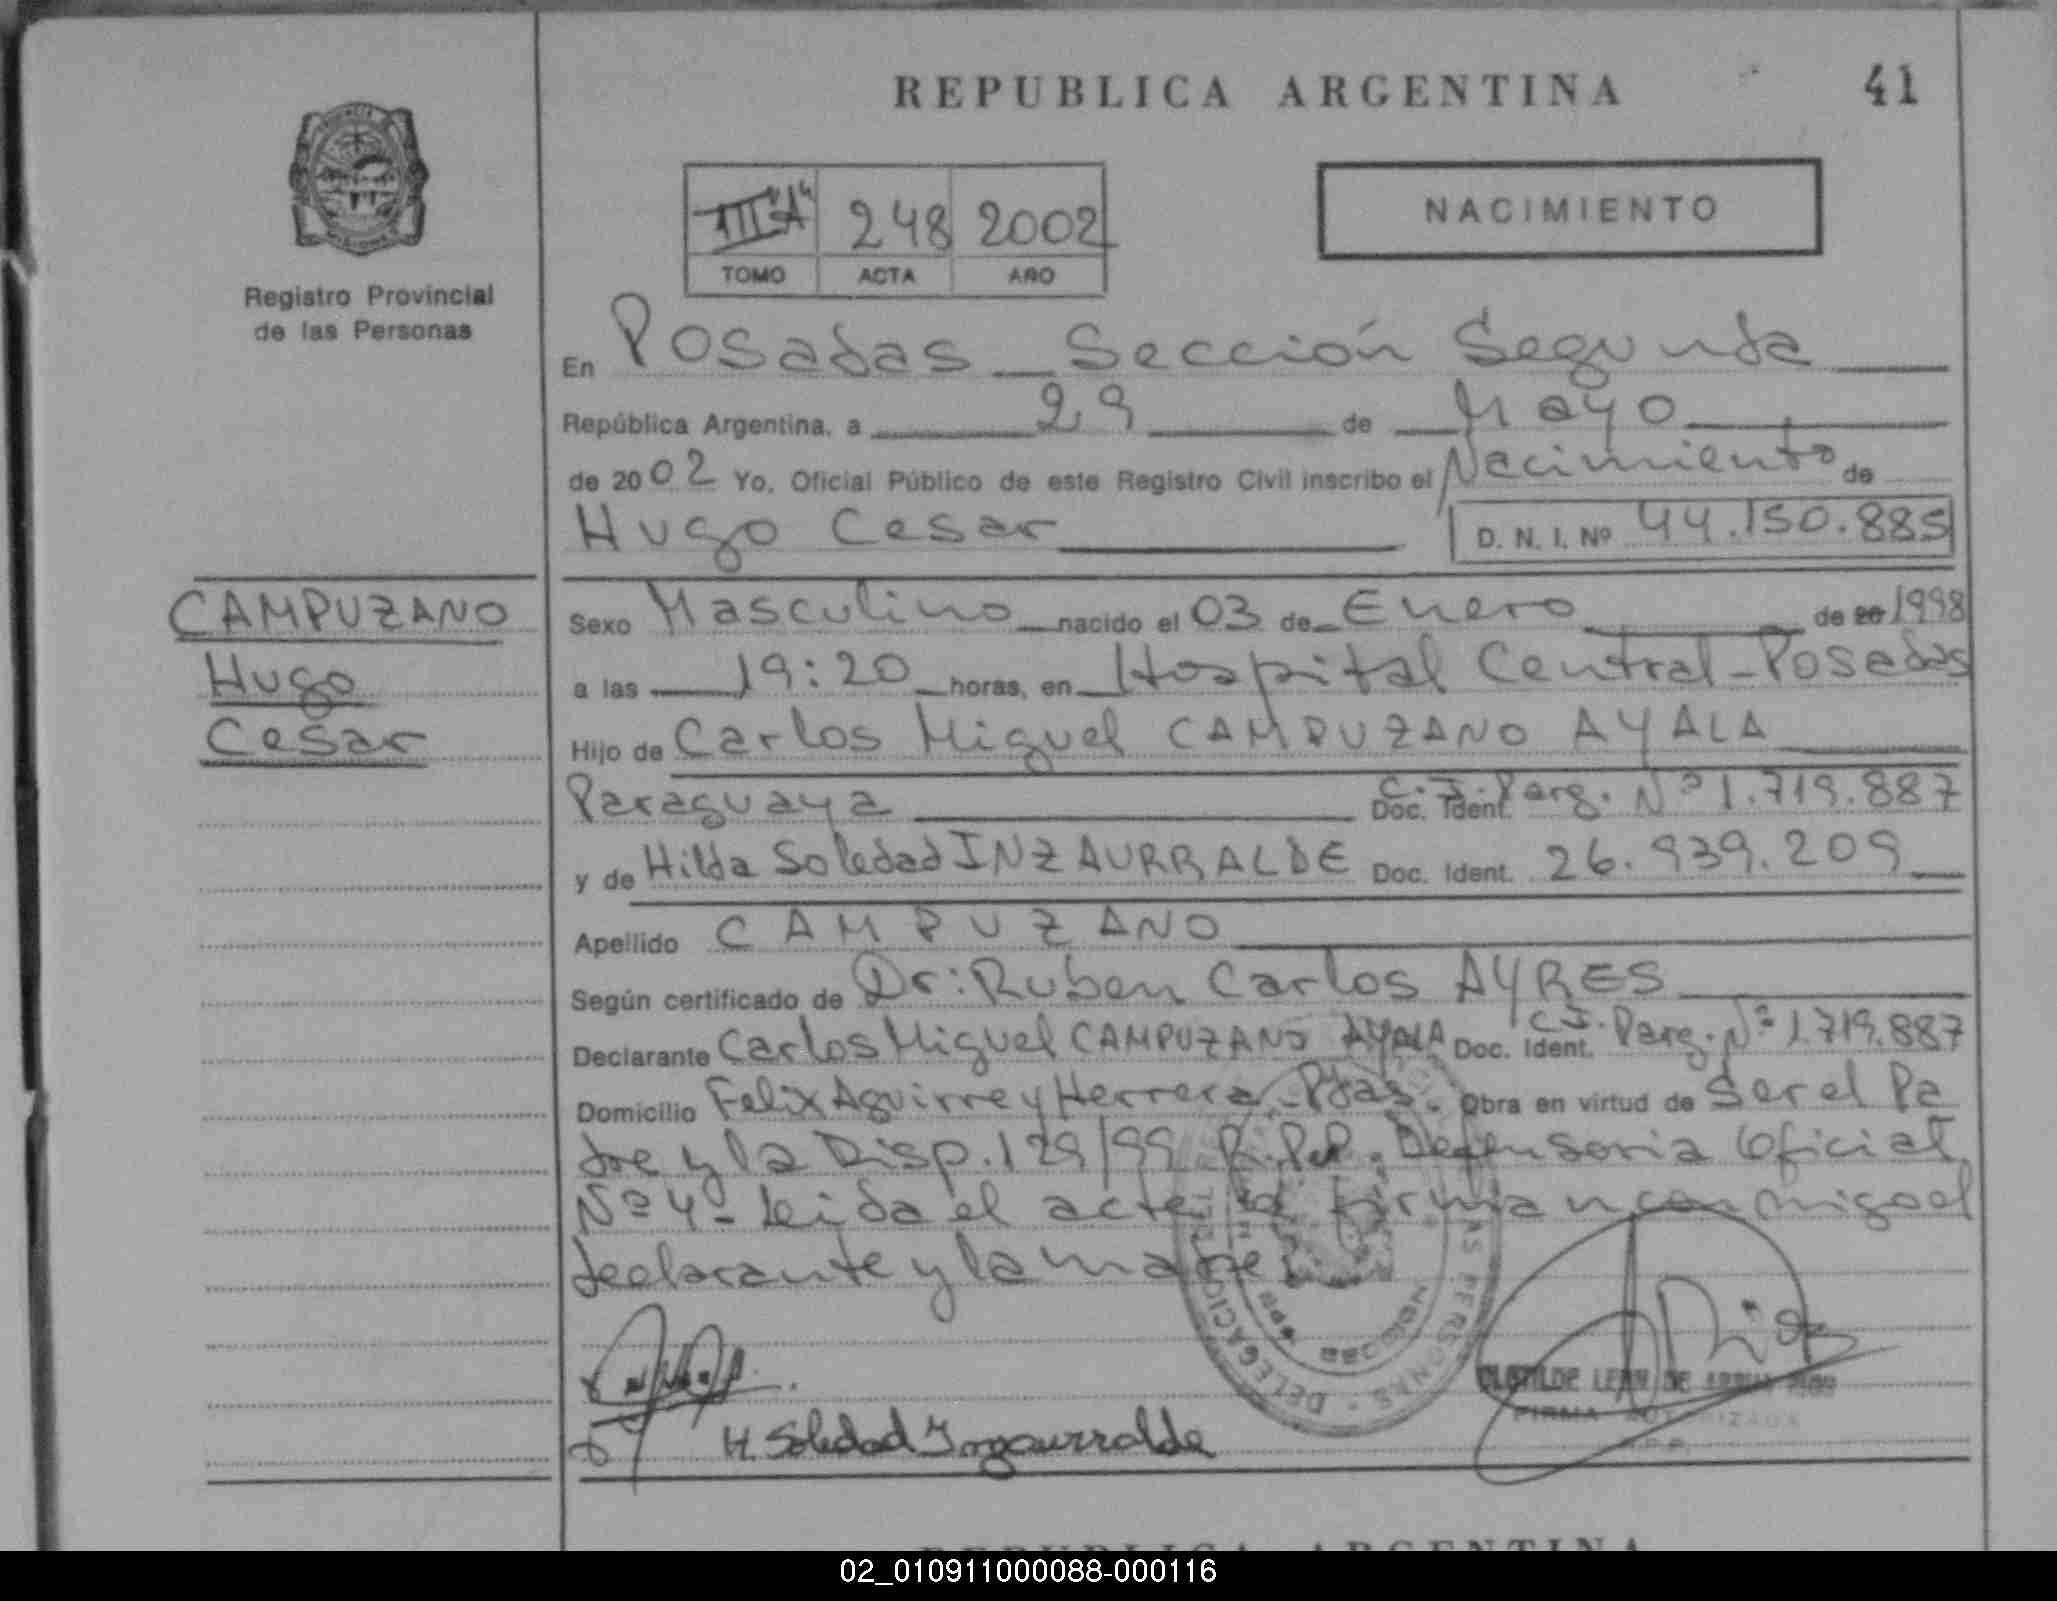 REPUBLICA ARGENTINA 41
III "A" 248 2002
TOMO ACTA AÑO
NACIMIENTO
Registro Provincial
de las Personas
En Posadas Sección Segunda
República Argentina, a 29 de Mayo
de 2002 Yo, Oficial Público de este Registro Civil inscribo el Nacimiento de
Hugo Cesar D. N. I. Nº 44.150.885
CAMPUZANO
Hugo
Cesar
Sexo Masculino nacido el 03 de Enero de 20 1998
a las 19:20 horas, en Hospital Central-Posadas
Hijo de Carlos Miguel CAMPUZANO AYALA
Paraguaya Doc. Ident. C.I. Parg. Nº 1.719.887
y de Hilda Soledad INZAURRALDE Doc. Ident. 26.939.209
Apellido CAMPUZANO
Según certificado de Dr: Ruben Carlos AYRES
Declarante Carlos Miguel CAMPUZANO AYALA Doc. Ident. C.I. Parg. Nº 1.719.887
Domicilio Felix Aguirre y Herrera-Pdas. Obra en virtud de Ser el Pa
dre y la Disp. 129/99 R.P.P. Defensoria Oficial
Nº 4- Leida el acta firman conmigo el
declarante y la madre
DELEGACION PERSONAS
H. Soledad Inzaurralde
CLOTILDE DE
FIRMA AUTORIZADA
REPUBLICA ARGENTINA
02_010911000088-000116